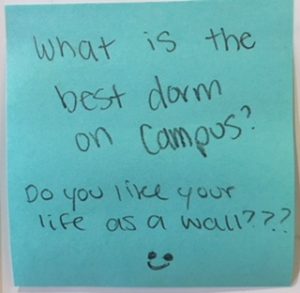 What is the
best dorm
on Campus?
Do you like your
life as a wall???